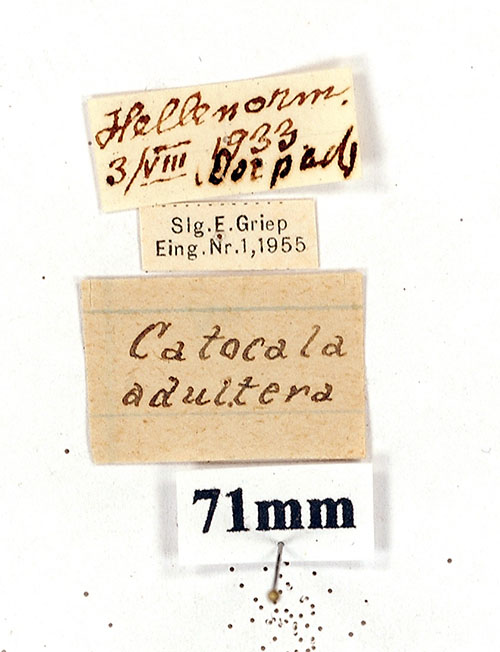 Hellenorm.
3/VIII 1933.
(Dorpad)
Slg.E.Griep
Eing.Nr.1,1955
Catocala
adultera
71mm